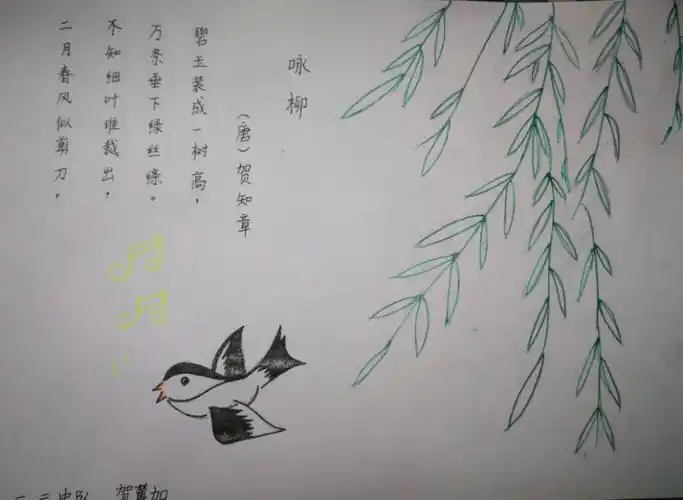 咏柳
（唐）贺知章
碧玉装成一树高，
万条垂下绿丝绦。
不知细叶谁裁出，
二月春风似剪刀，
二三中队 贺